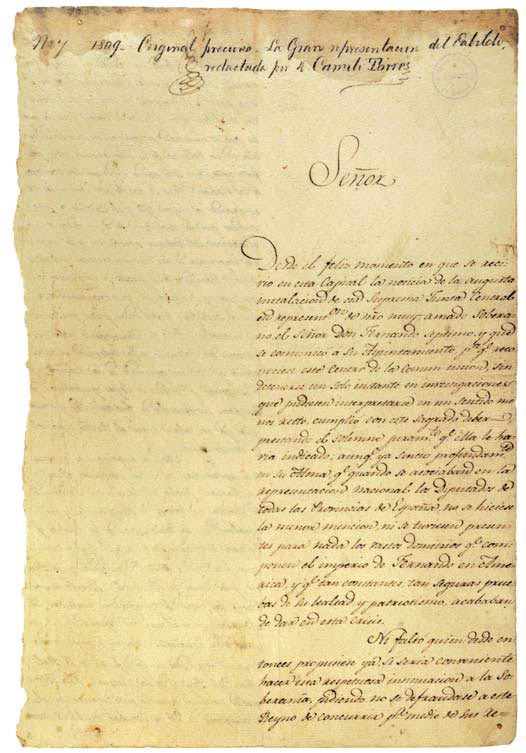 No. 7 1809. Original precioso - La Gran representacion del Cabildo,
redactada por D. Camilo Torres
Señor
Desde el feliz momento en que se reci-
vio en esta Capital la noticia de la augusta
instalacion de esa Suprema Junta Central
en representon. de nro muy amado Sobera-
no el Señor Don Fernando septimo, y que
se comunicó a su Ayuntamiento, pa. qe. reco-
nociese este centro de la comun union, sin
detenerse un solo instante en investigaciones
que pudiesen interpretarse en un sentido me-
nos recto, cumplio con este sagrado deber
prestando el solemne juramto. qe. ella le ha-
via indicado; aunqe. ya sintio profundamte.
en su Alma, qe. quando se asociaban en la
representacion nacional los Diputados de
todas las Provincias de España, no se hiciese
la menor mencion, ni se tuviesen presen-
tes para nada los vastos dominios qe. com-
ponen el imperio de Fernando en Ame-
rica, y qe. tan constantes, tan seguras prue-
bas de su lealtad y patriotismo, acababan
de dar en esta crisis.
Ni faltó quien desde en-
tonces propusiese ya, si seria conveniente
hacer esta respetuosa insinuacion a la So-
berania, pidiendo no se defraudase a este
Reyno de concurrir pr. medio de sus Re-